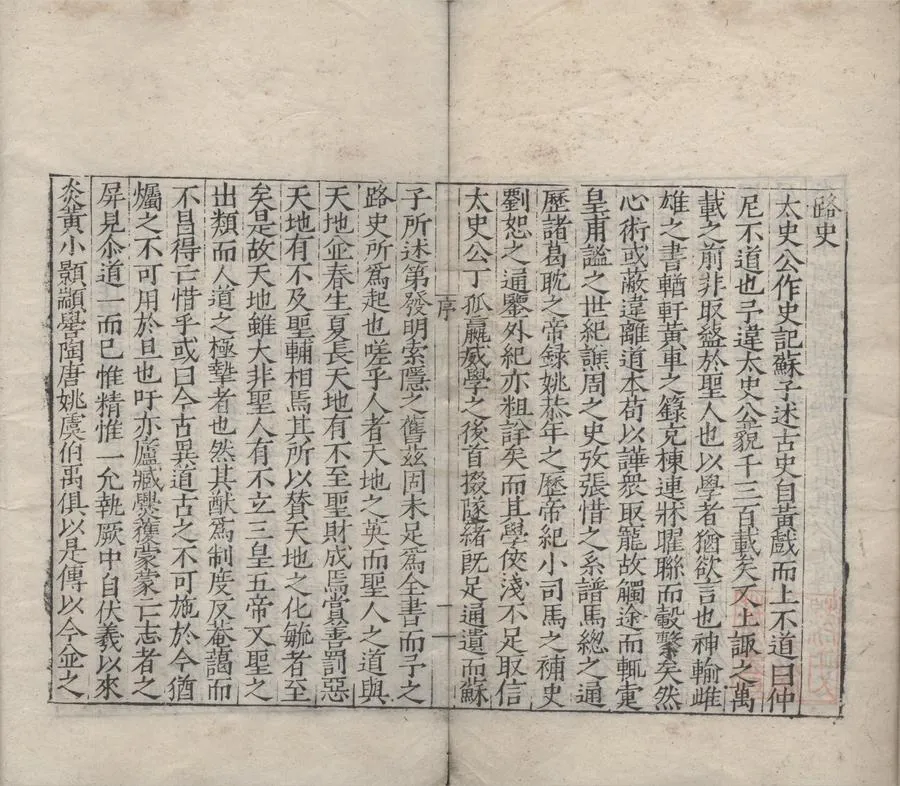 路史
太史公作史記蘇子述古史自黃戲而上不道曰仲
尼不道也予違太史公藐千三百載矣又上諏之萬
載之前非取盭於聖人也以學者猶欲言也神輸雌
雄之書輶軒黃車之籙克棟連牀曜聯而轂繫矣然
心術或蔽違離道本苟以譁衆取寵故觸途而輒疐
皇甫謐之世紀譙周之史攷張愔之系譜馬總之通
歷諸葛耽之帝録姚恭年之歷帝紀小司馬之補史
劉恕之通鑒外紀亦粗詳矣而其學俠淺不足取信
太史公丁孤嬴威學之後首掇隊緒既足通遺而蘇
序
一
子所述第發明索隱之舊茲固未足爲全書而予之
路史所爲起也嗟乎人者天地之英而聖人之道與
天地並春生夏長天地有不至聖財成焉賞善罰惡
天地有不及聖輔相焉其所以賛天地之化毓者至
矣是故天地雖大非聖人有不立三皇五帝又聖之
出類而人道之極摯者也然其猷爲制度反菴藹而
不昌得亡惜乎或曰今古異道古之不可施於今猶
爥之不可用於旦也吁亦廬臧㸑䕶蒙蒙亡志者之
屏見尒道一而已惟精惟一允執厥中自伏羲以來
炎黃小顥顓嚳陶唐姚虞伯禹俱以是傳以今並之